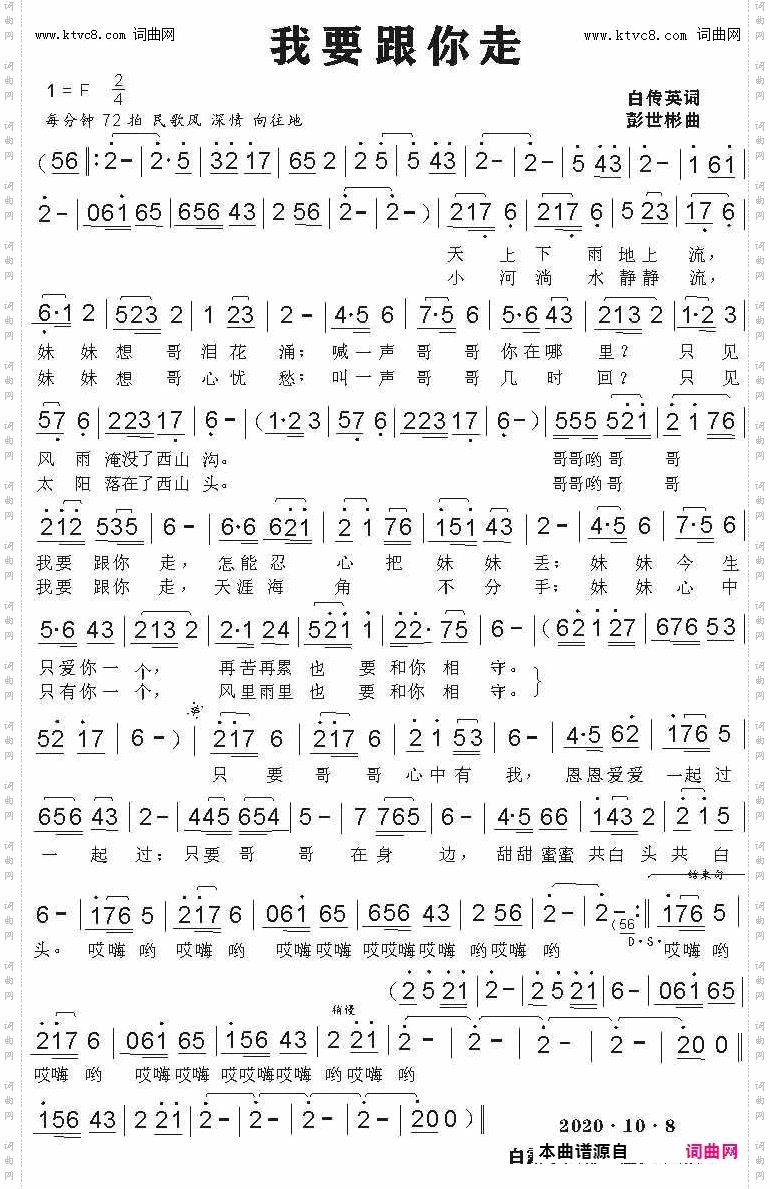 www.ktvc8.com 词曲网
我要跟你走
www.ktvc8.com 词曲网
1=F 2/4
白传英词
每分钟 72 拍 民歌风 深情 向往地
彭世彬曲
(56 ‖: 2- | 2·5 | 32 17 | 65 2 | 2 5 | 5 43 | 2- | 2- | 5 43 | 2- | 1 61 |
2- | 061 65 | 656 43 | 2 56 | 2- | 2- ) | 217 6 | 217 6 | 5 23 | 17 6 |
天 上 下 雨 地上 流，
小 河 淌 水 静静 流，
6·1 2 | 523 2 | 1 23 | 2- | 4·5 6 | 7·5 6 | 5·6 43 | 213 2 | 1·2 3 |
妹 妹 想 哥 泪 花 涌；喊一声 哥 哥 你在哪 里？ 只 见
妹 妹 想 哥 心 忧 愁；叫一声 哥 哥 几 时 回？ 只 见
57 6 | 223 17 | 6- | (1·2 3 | 57 6 | 223 17 | 6- ) | 555 521 | 2 1 76 |
风 雨 淹没了西山 沟。 哥哥哟 哥 哥
太 阳 落在了西山 头。 哥哥哟 哥 哥
212 535 | 6- | 6·6 621 | 2 1 76 | 151 43 | 2- | 4·5 6 | 7·5 6 |
我要 跟你 走，怎能忍 心 把 妹 妹 丢；妹 妹 今 生
我要 跟你 走，天涯海 角 不 分 手；妹 妹 心 中
5·6 43 | 213 2 | 2·1 24 | 521 1 | 22· 75 | 6- | (621 27 | 676 53 |
只爱你一 个， 再苦再累 也 要 和你 相 守。
只有你一 个， 风里雨里 也 要 和你 相 守。
52 17 | 6- ) | 217 6 | 217 6 | 21 53 | 6- | 4·5 62 | 176 5 |
只 要 哥 哥 心中有 我，恩恩爱爱 一起 过
656 43 | 2- | 445 654 | 5- | 7 765 | 6- | 4·5 66 | 143 2 | 21 5 |
一 起 过；只要 哥 哥 在 身 边，甜甜 蜜蜜 共白 头 共 白
结束句
6- | 176 5 | 217 6 | 061 65 | 656 43 | 2 56 | 2- | 2- (56 :‖ 176 5 |
D·S·
头。 哎嗨 哟 哎嗨 哟 哎嗨哎嗨 哎哎嗨哎嗨 哟哎嗨 哟 哎嗨 哟
(2 5 21 | 2- | 2 5 21 | 6- | 061 65
稍慢
217 6 | 061 65 | 156 43 | 2 21 | 2- | 2- | 2- | 2- | 20 0 ‖
哎嗨 哟 哎嗨哎嗨 哎哎嗨哎嗨 哟哎嗨 哟
156 43 | 2 21 | 2- | 2- | 2- | 20 0 ) ‖
2020·10·8
本曲谱源自
词曲网